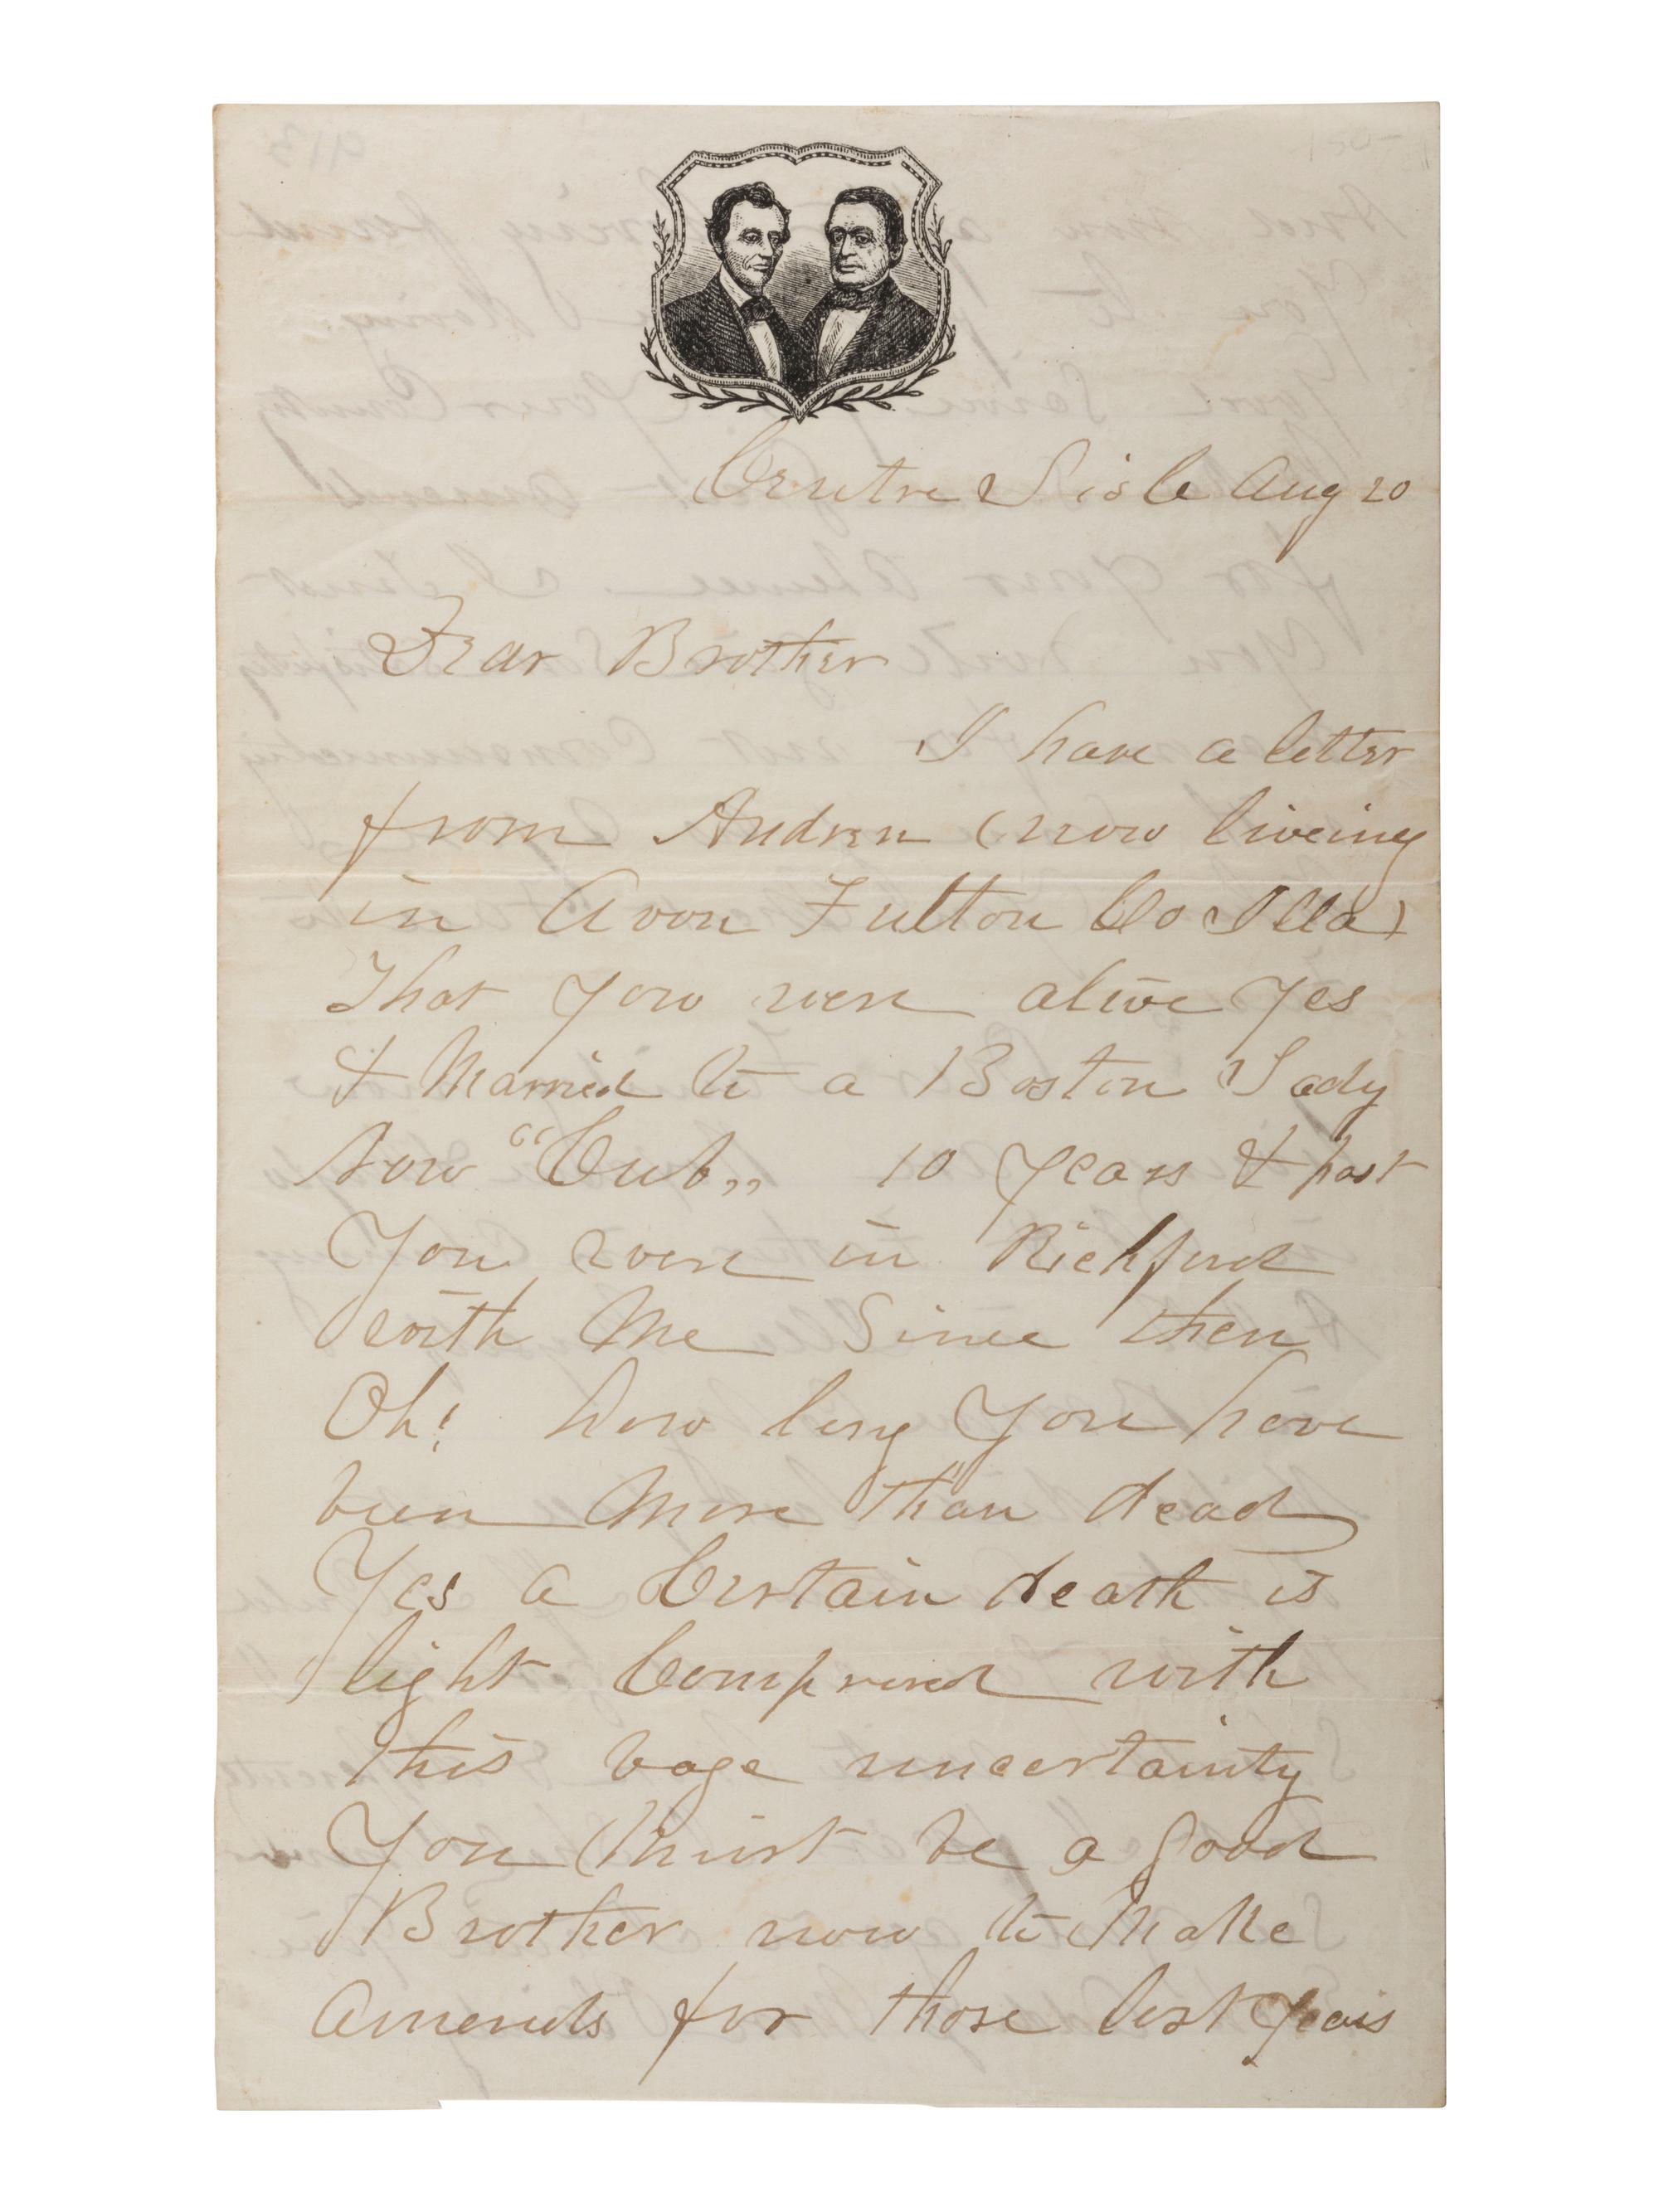 Centre Lisle Aug 20
Dear Brother
I have a letter
from Andrew (now liveing
in Avon Fulton Co Ills)
That you were alive Yes
& Married to a Boston Lady
Now "Cub„ 10 Years & past
You were in Richford
with Me Since then
Oh! how long You have
been More than dead
Yes a Certain death is
light Compared with
this vage uncertainty
You Must be a good
Brother now to Make
Amends for those lost years